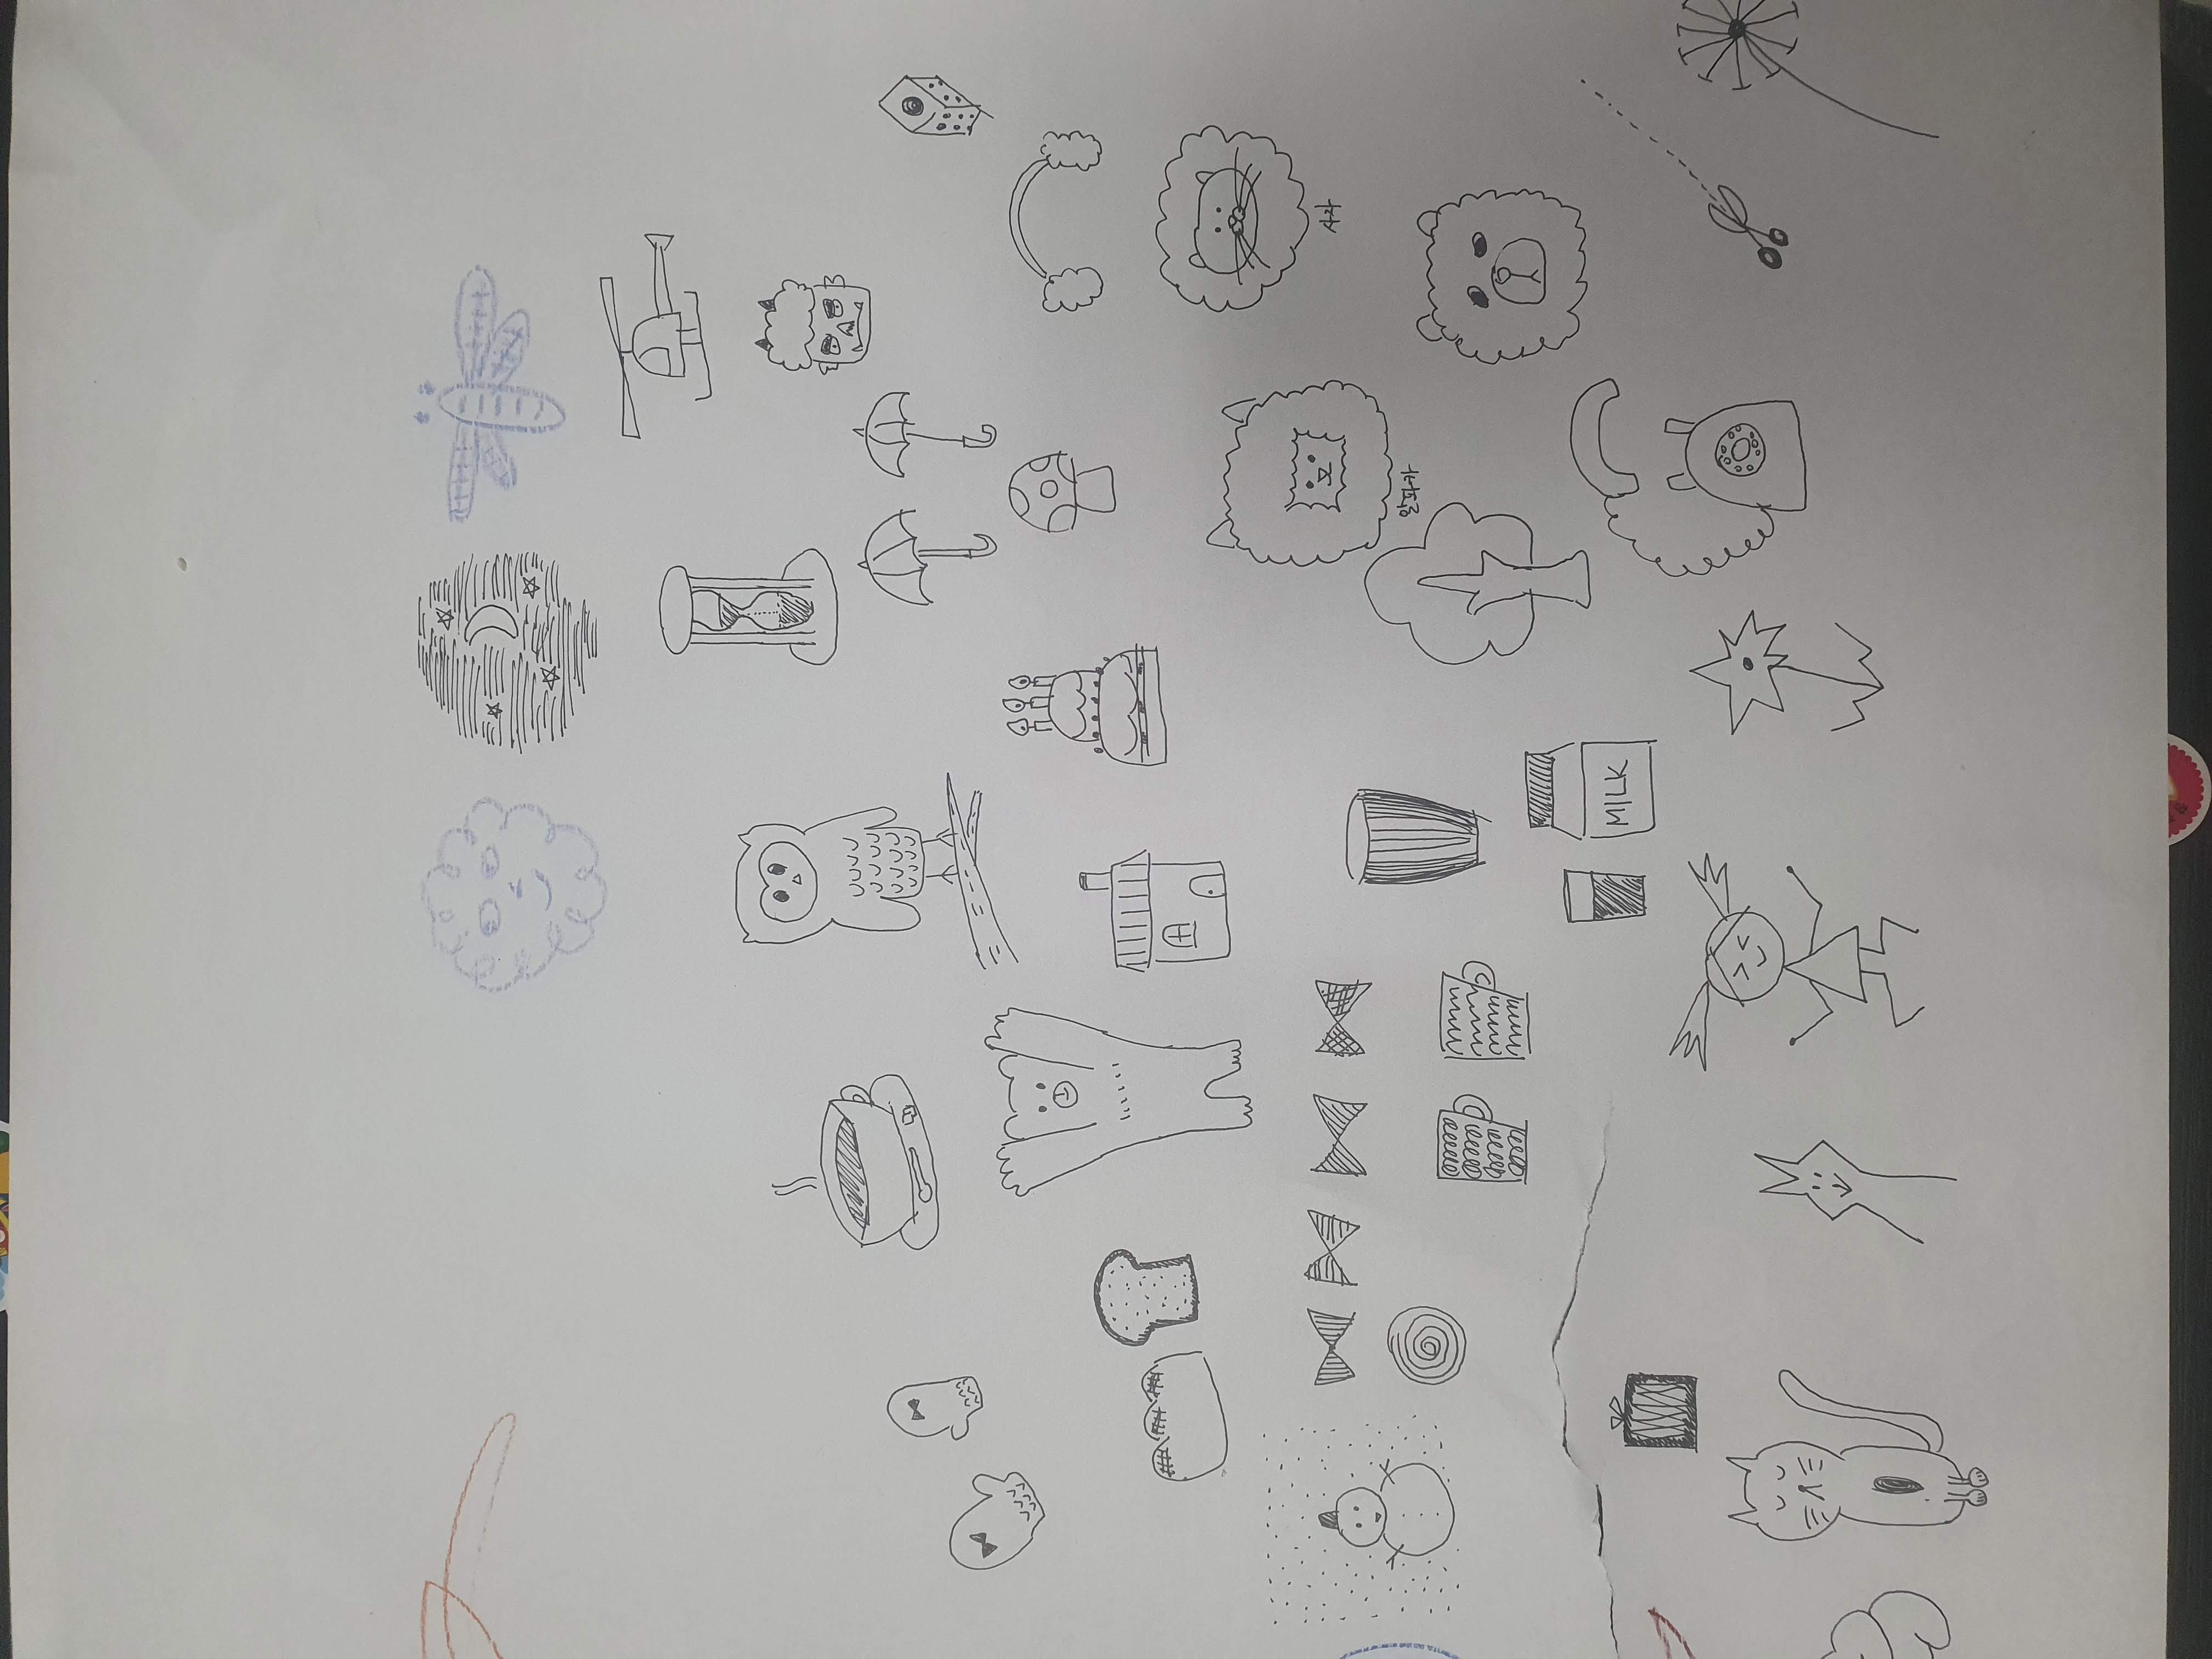 사자
알파카
MILK